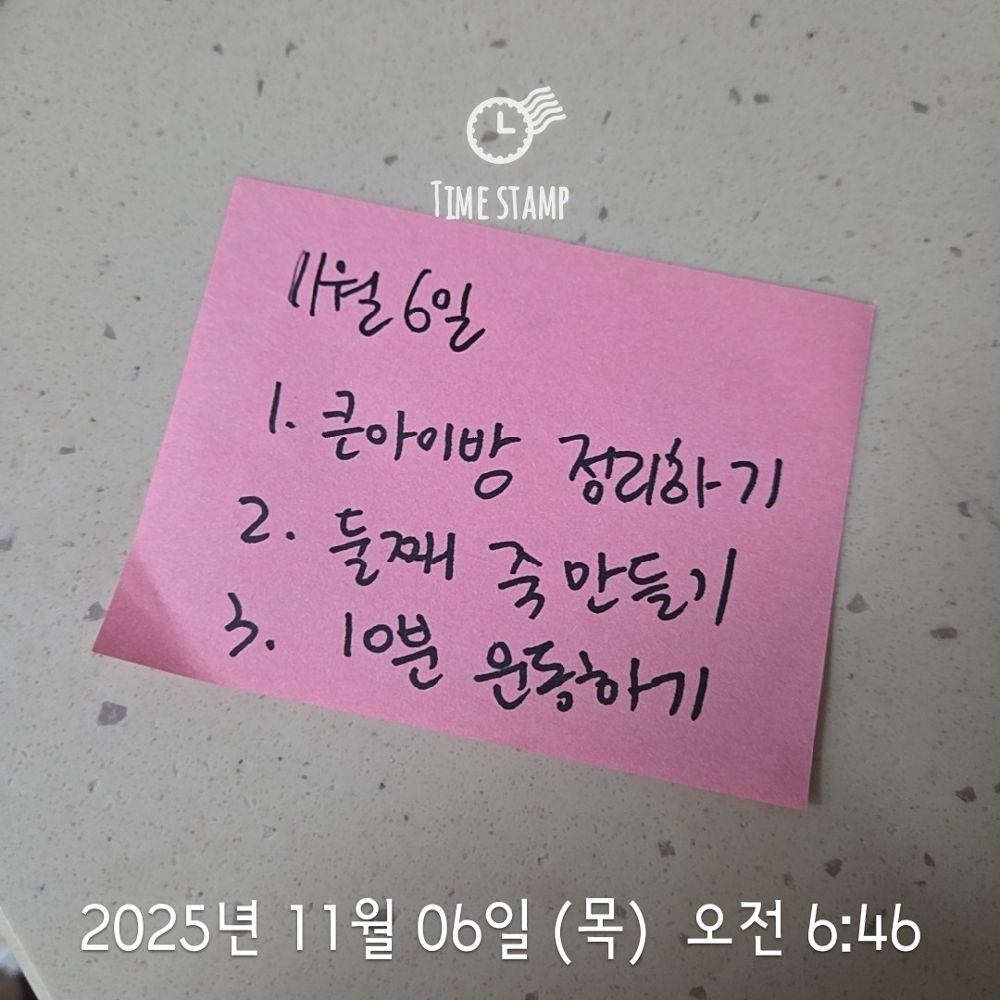 TIME STAMP
11월 6일
1. 큰아이방 정리하기
2. 둘째 죽 만들기
3. 10분 운동하기
2025년 11월 06일 (목) 오전 6:46